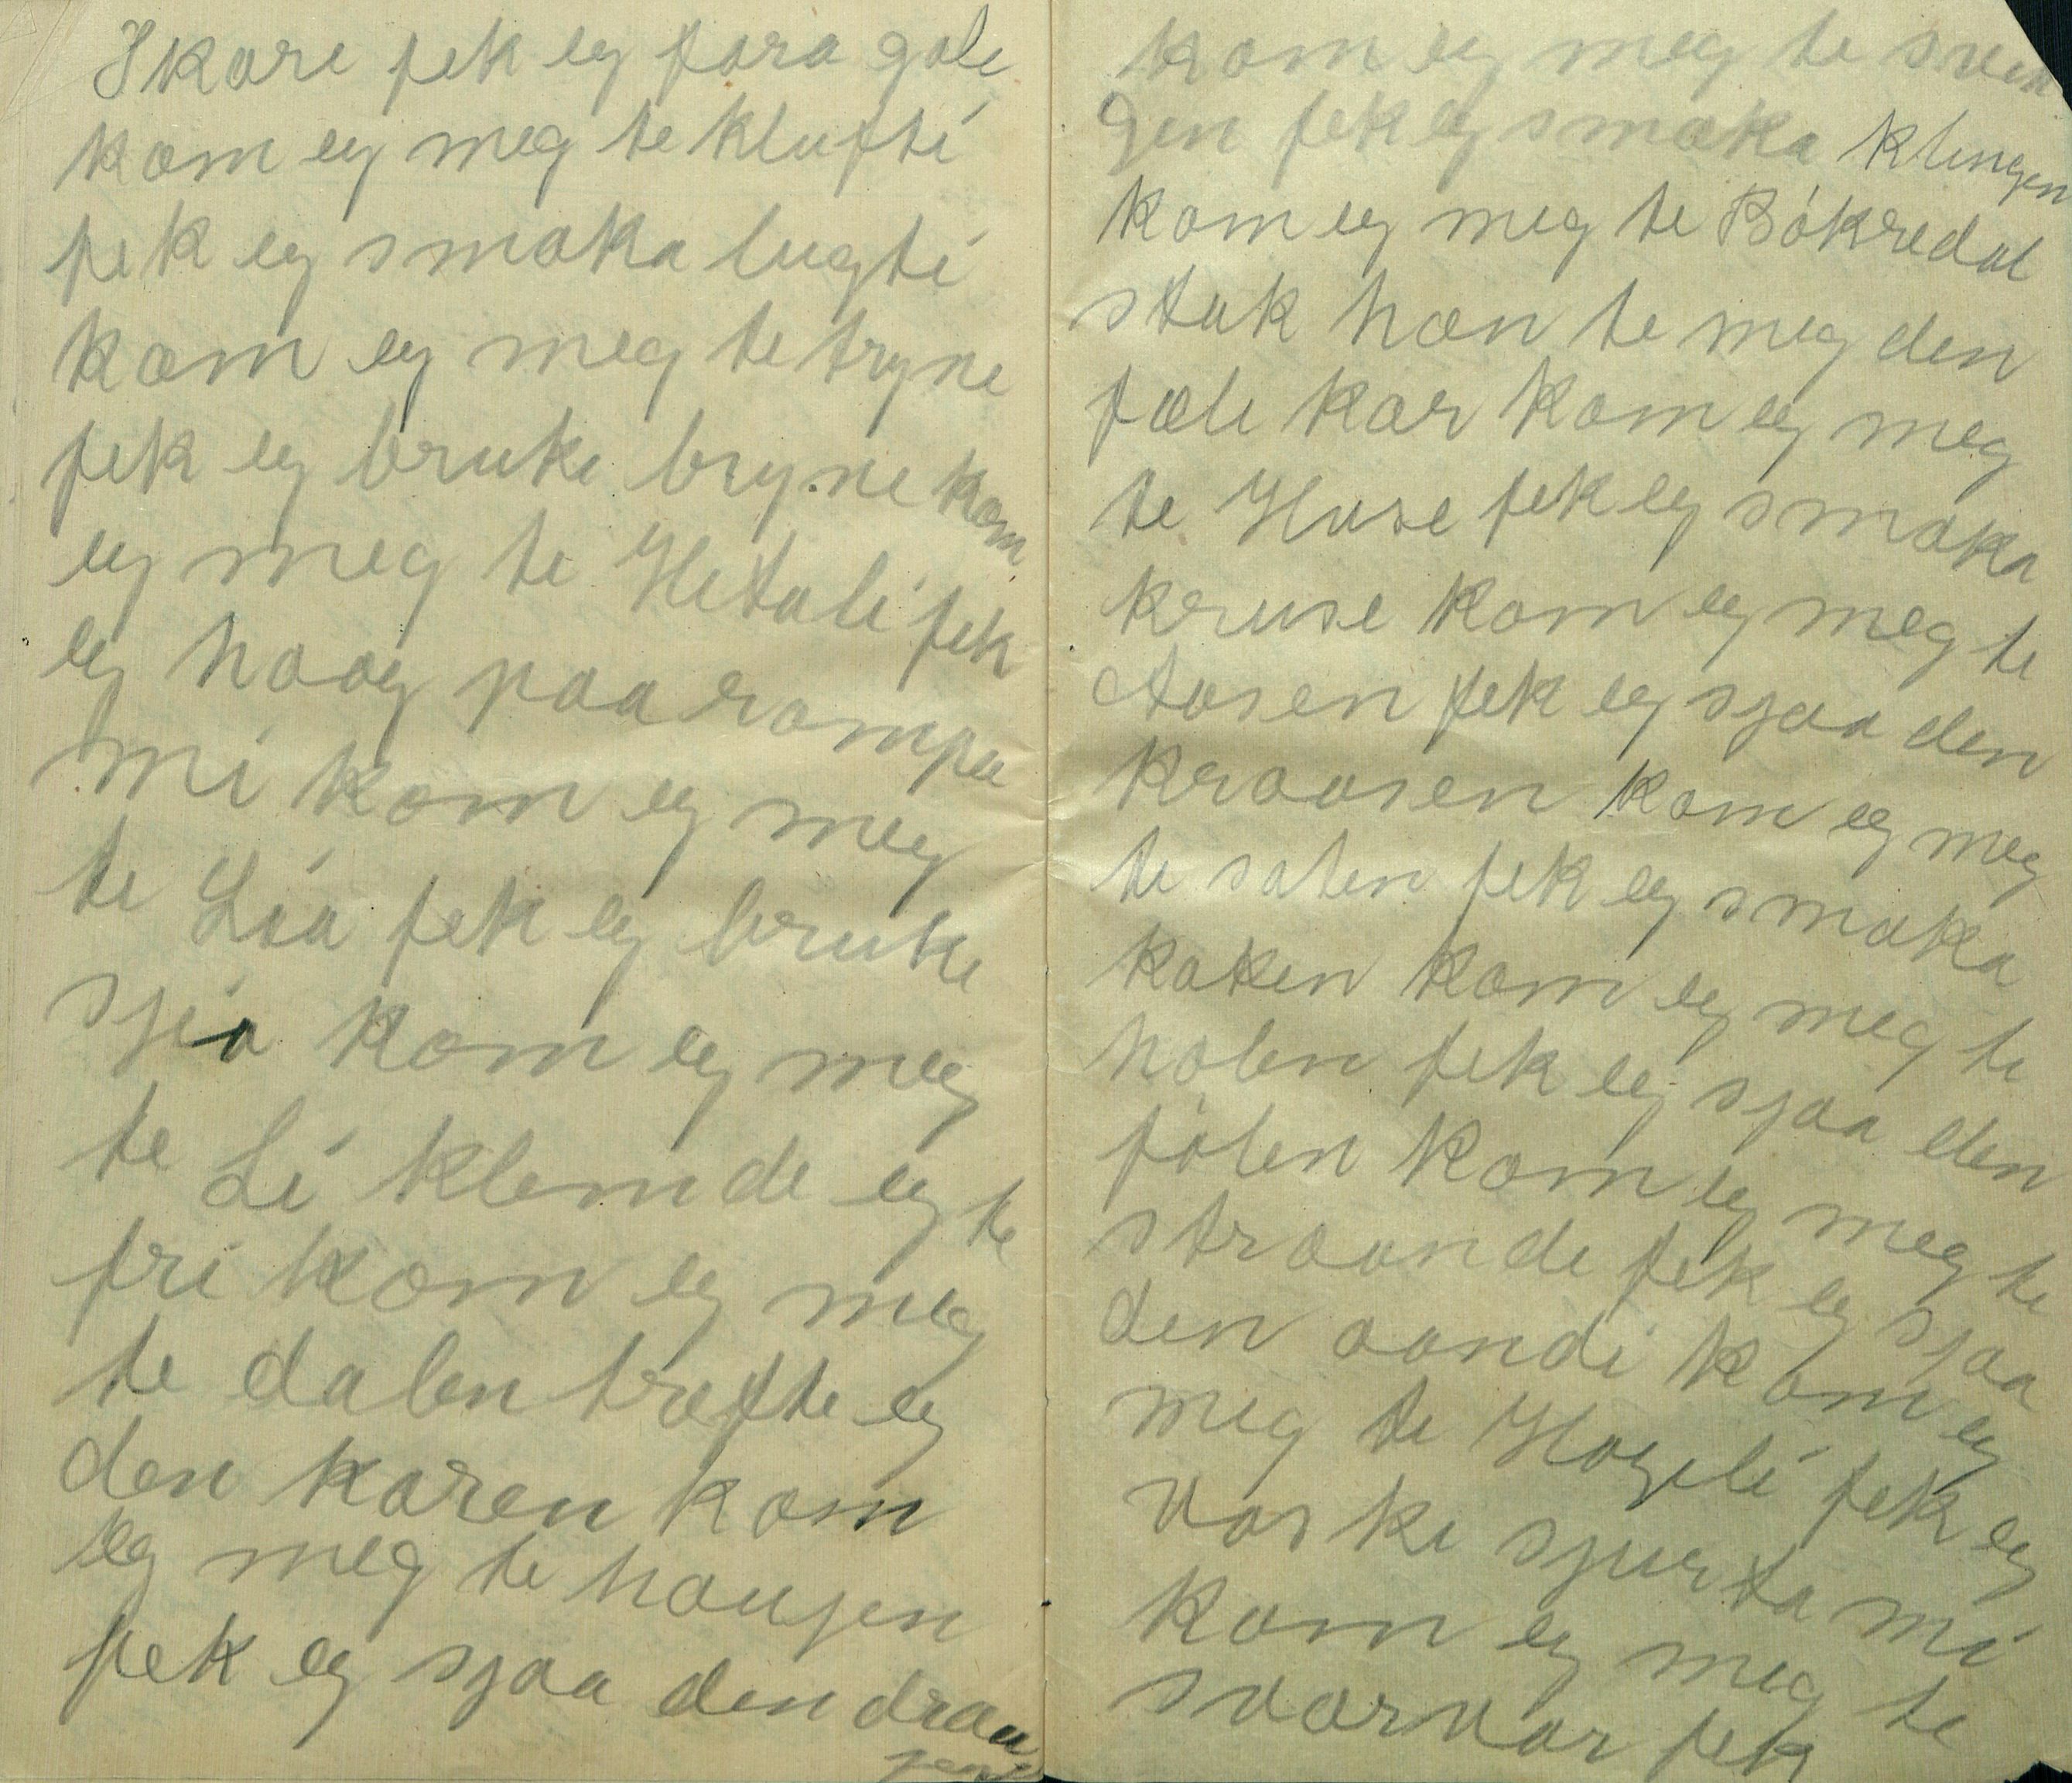 I kare fek eg fara gale
kom eg meg te klufti
fek eg smaka lugti
kom eg meg te tryne
fek eg bruke bryne kom
eg meg te Hetali fek
eg haag paa rompa
mi kom eg meg
te Lia fek eg bruke
sjia kom eg meg
te Li klemde eg te
fri kom eg meg
te dalen trefte eg
den karen kom
eg meg te haugen
fek eg sjaa den drau
gen
kom eg meg te svein
gen fek eg smaka klingen
kom eg meg te Bókredal
stak han te meg den
fæle kar kom eg meg
te Huse fek eg smaka
kruse kom eg meg te
Aasen fek eg sjaa den
kraasen kom eg meg
te saten fek eg smaka
kaken kom eg meg te
holen fek eg sjaa den
fólen kom eg meg te
straande fek eg sjaa
den aandi kom eg
meg te Hogeli fek eg
vaske sjurta mi
kom eg meg te
svarvar fek